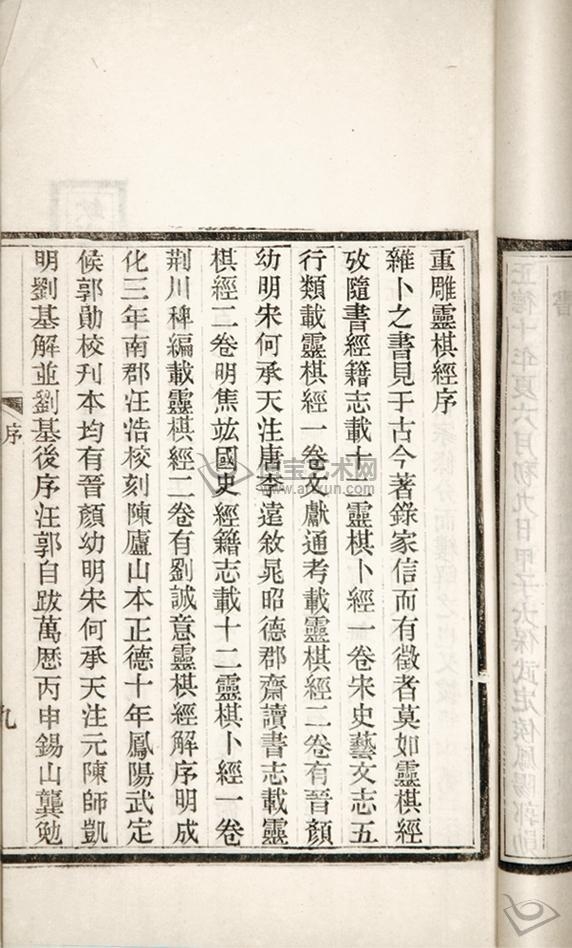 重雕靈棋經序
雜卜之書見于古今著錄家信而有徵者莫如靈棋經
攷隨書經籍志載十二靈棋卜經一卷宋史藝文志五
行類載靈棋經一卷文獻通考載靈棋經二卷有晉顏
幼明宋何承天注唐李遠敘晁昭德郡齋讀書志載靈
棋經二卷明焦竑國史經籍志載十二靈棋卜經一卷
荆川稗編載靈棋經二卷有劉誠意靈棋經解序明成
化三年南郡汪浩校刻陳廬山本正德十年鳳陽武定
候郭勛校刊本均有晉顏幼明宋何承天注元陳師凱
明劉基解並劉基後序汪郭自跋萬厯丙申錫山龔勉
序
九
正德十年夏六月初九日甲子太保武定侯鳳陽郭勛
书
www.artxun.com